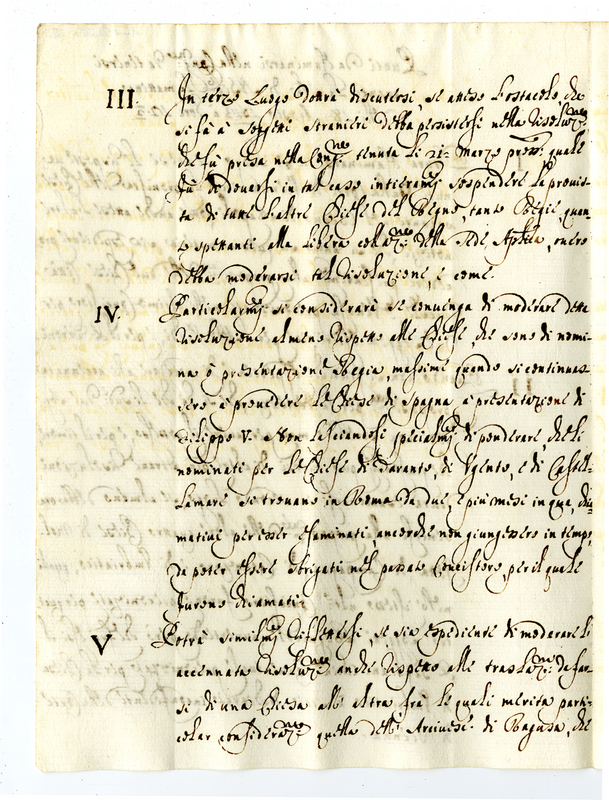 III. In terzo luogo dovrà discutersi, se atteso l'ostacolo, che
si fà à Soggetti stranieri debba persistersi nella risoluz.ne
che fù presa nella Cong.ne tenuta li 21 Marzo pross.º quale
fù di doversi in tal caso intieram.te sospendere la provis-
ta di tutte l'altre Chiese del Regno, tanto Regie quan-
to spettanti alla libera collaz.ne della Sede Aplica, overo
debba moderarsi tal risoluzione, e come.
IV. Particolarm.te si considerarà se convenga di moderare detta
risoluzione almeno rispetto alle Chiese, che sono di nomi-
na ò presentazione Regia, massime quando si continuas-
sero à provedere le Chiese di Spagna à presentazione di
Filippo V. Non lasciandosi specialm.te di ponderare, che li
nominati per le Chiese di Taranto, di Ugento, e di Castell-
lamare si trovano in Roma da due, e più mesi in qua, chia-
mativi per esser esaminati, ancorche non giungessero in tempo
da poter essere sbrigati nel passato Concistoro, per il quale
furono chiamati.
V Potrà similm.te riflettersi, se sia espediente di moderare l'
accennata risoluz.ne anche rispetto alle traslaz.ni da far-
si di una Chiesa all'altra, frà le quali merita parti-
colar consideraz.ne quella dell' Arcivesc.º di Ragusa, che